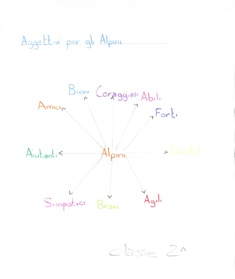 Aggettivi per gli Alpini
Buoni
Coraggiosi
Abili
Amici
Forti
Aiutanti
Alpini
Simpatici
Bravi
Agili
classe 2^